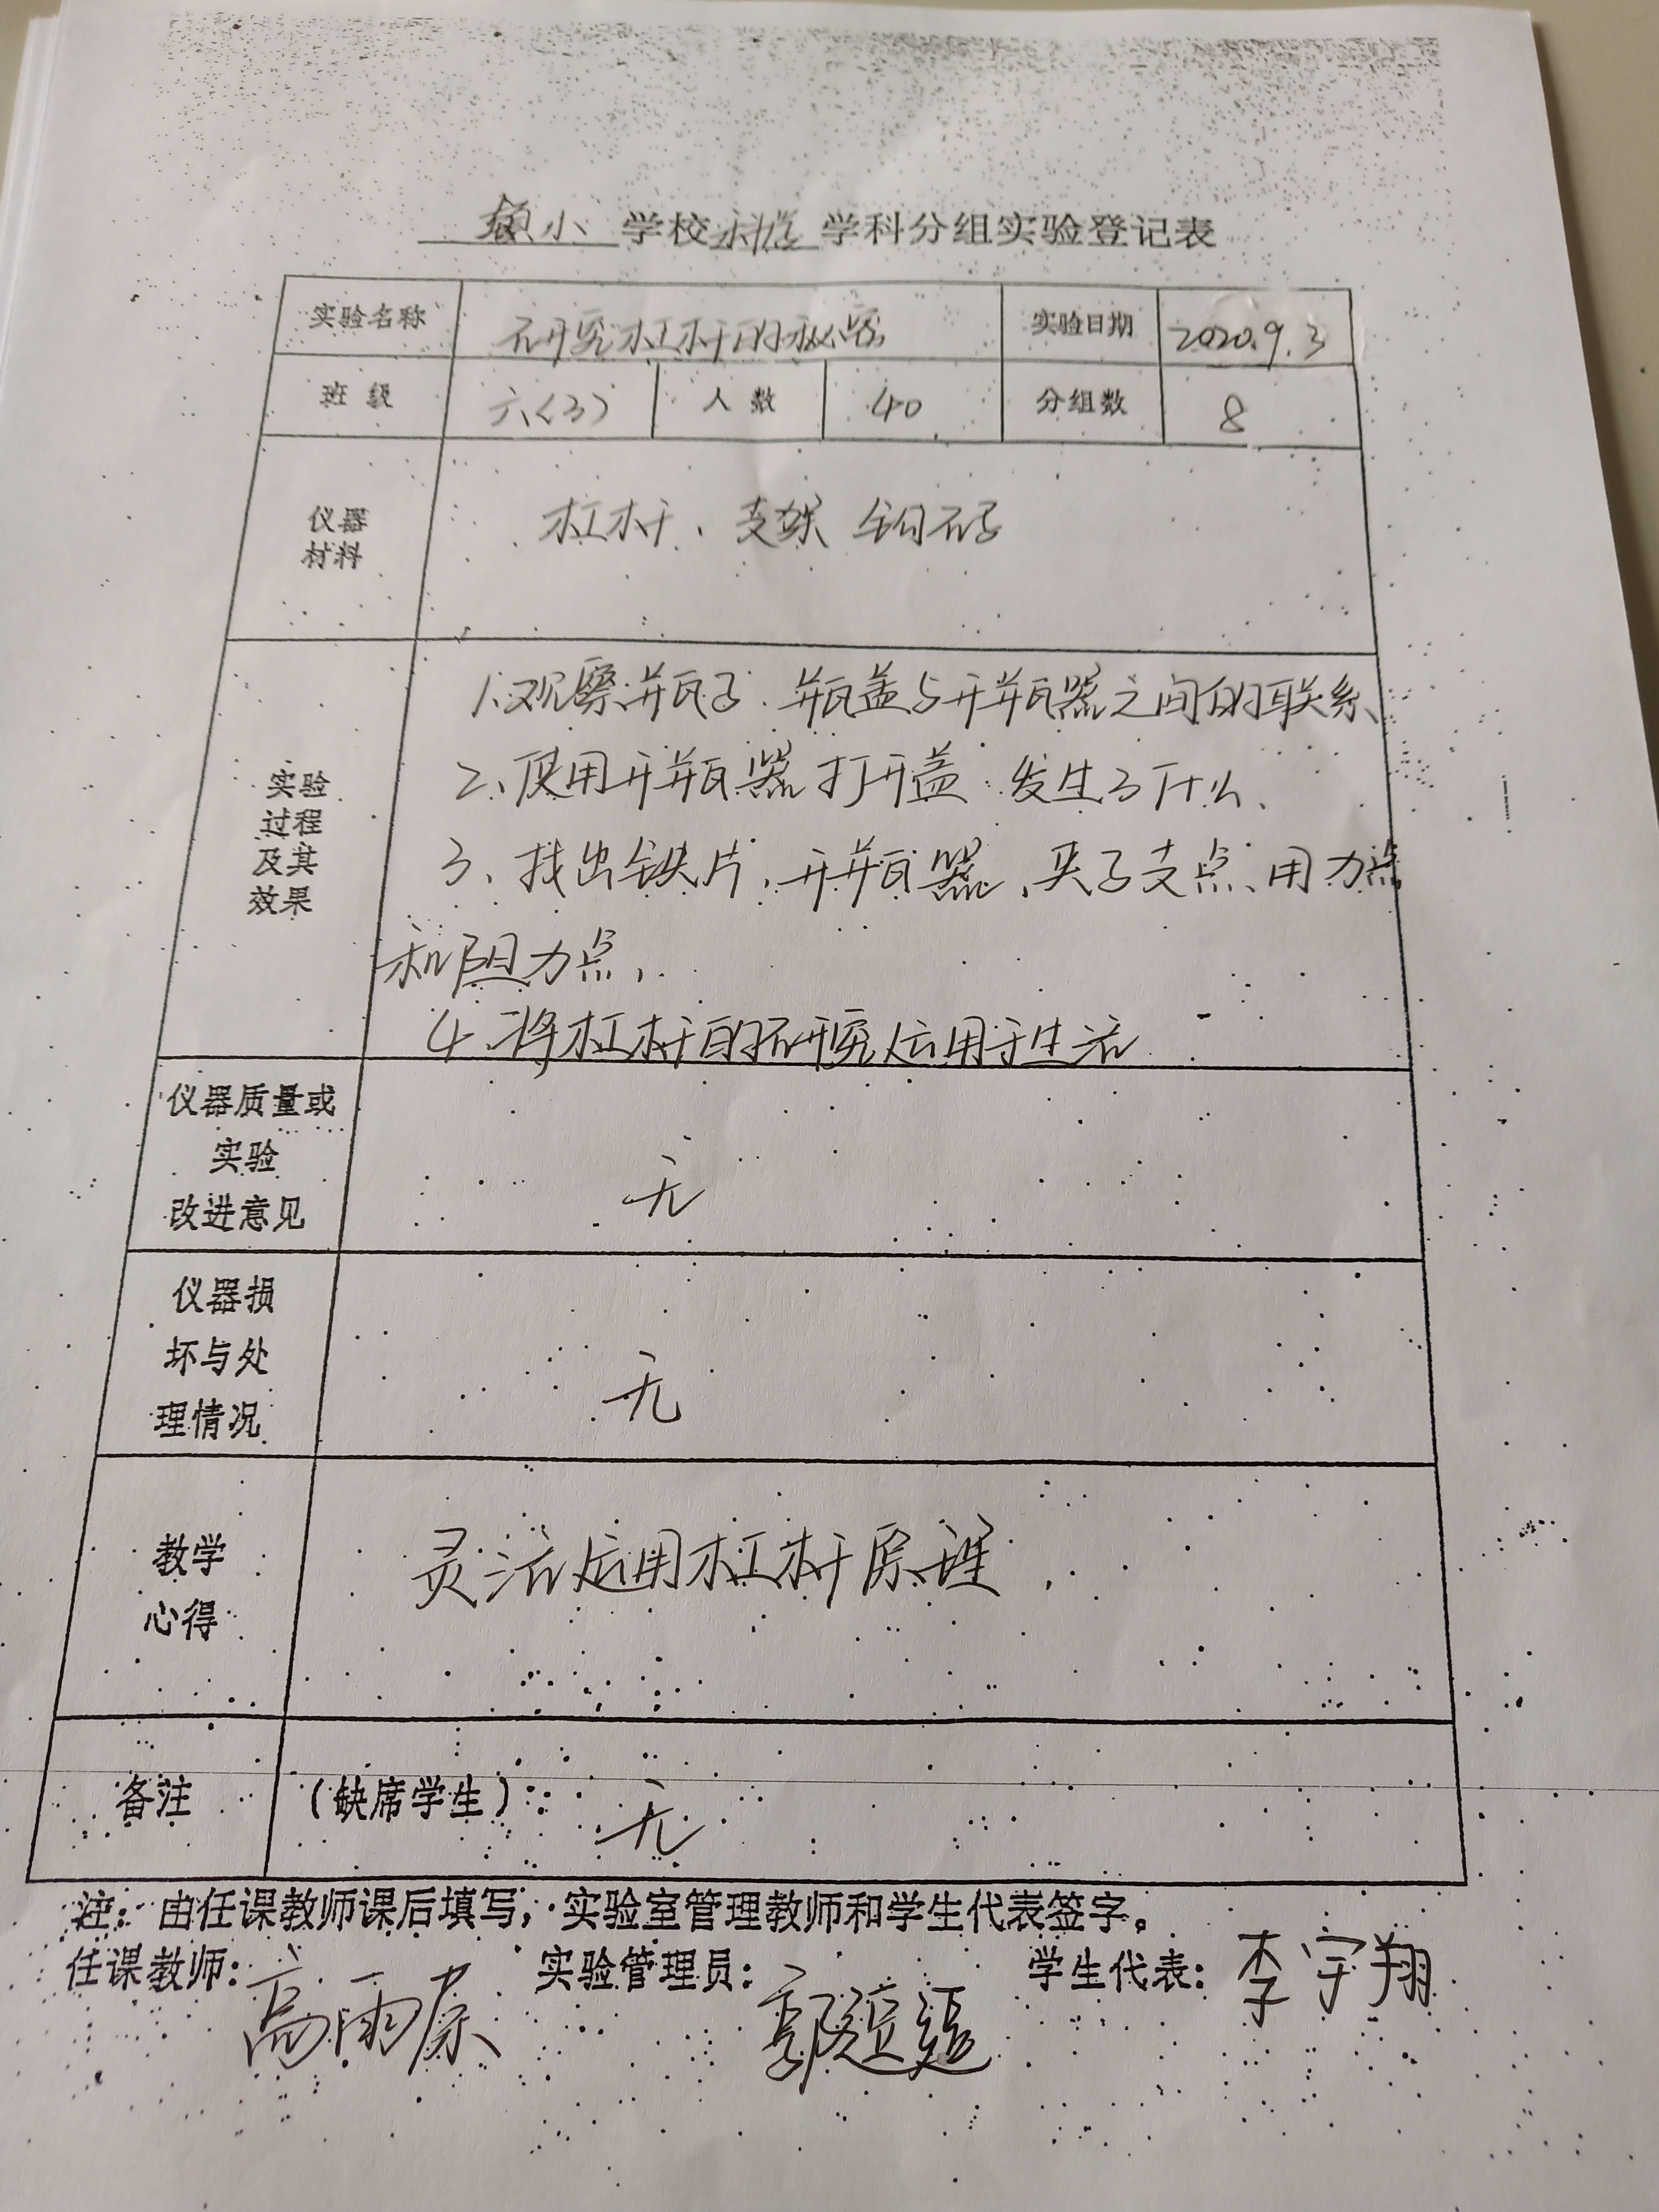 小 学校 科学 学科分组实验登记表
实验名称 研究杠杆的秘密 实验日期 2020.9.3
班 级 六(3) 人 数 40 分组数 8
仪器
材料
杠杆、支架 钩码
实验
过程
及其
效果
1.观察瓶子、瓶盖与开瓶器之间的联系、
2、使用开瓶器打开盖、发生了什么、
3、找出铁片、开瓶器、夹子支点、用力点
和阻力点,
4、将杠杆的研究应用于生活
仪器质量或
实验
改进意见
无
仪器损
坏与处
理情况
无
教学
心得
灵活应用杠杆原理.
备注 (缺席学生): 无
注: 由任课教师课后填写, 实验室管理教师和学生代表签字。
任课教师: 高雨 实验管理员: 郭 学生代表: 李宇翔